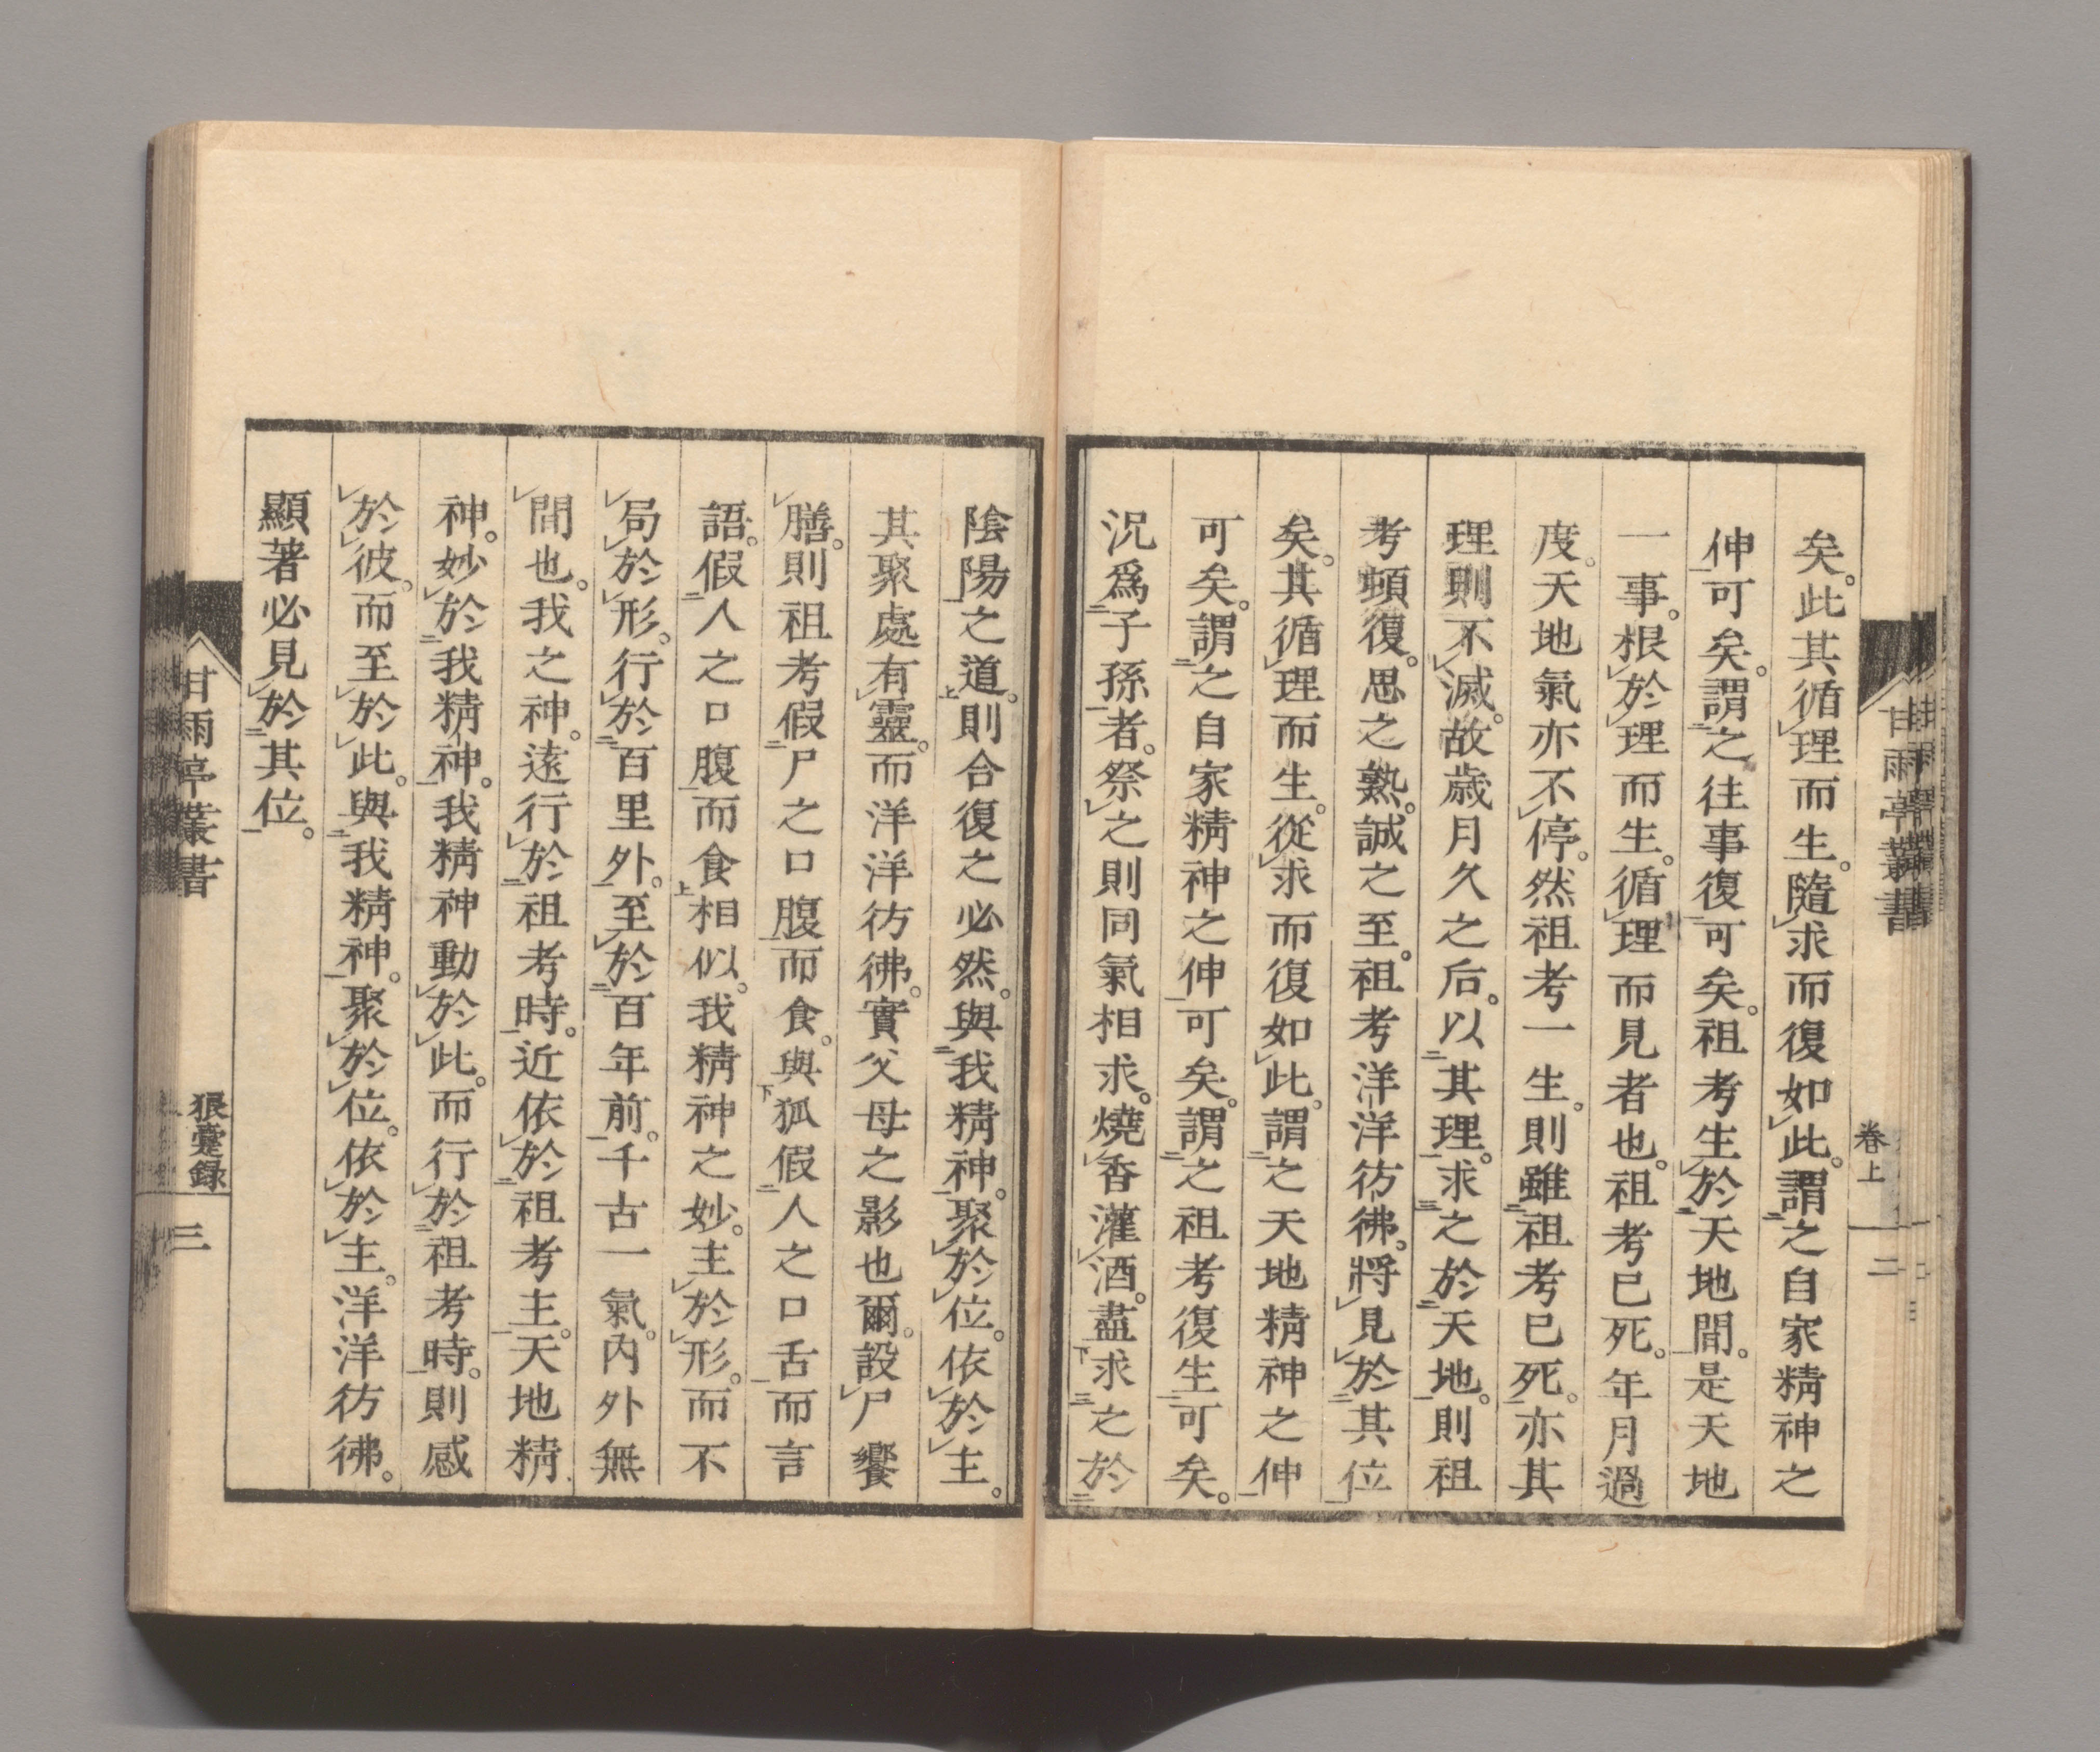 矣。此其循理而生。隨求而復如此。謂之自家精神之
伸可矣。謂之往事復可矣。祖考生於天地間。是天地
一事。根於理而生。循理而見者也。祖考已死。年月過
度。天地氣亦不停。然祖考一生。則雖祖考已死。亦其
理則不滅。故歲月久之后。以其理。求之於天地。則祖
考頓復。思之熟。誠之至。祖考洋洋彷彿。將見於其位
矣。其循理而生。從求而復如此。謂之天地精神之伸
可矣。謂之自家精神之伸可矣。謂之祖考復生可矣。
況爲子孫者。祭之則同氣相求。燒香灌酒。盡求之於
甘雨亭叢書
卷上
二
陰陽之道。則合復之必然。與我精神。聚於位。依於主。
其聚處有靈。而洋洋彷彿。實父母之影也爾。設尸饗
膳。則祖考假尸之口腹而食。與狐假人之口舌而言
語。假人之口腹而食相似。我精神之妙。主於形。而不
局於形。行於百里外。至於百年前。千古一氣。內外無
間也。我之神。遠行於祖考時。近依於祖考主。天地精
神。妙於我精神。我精神動於此。而行於祖考時。則感
於彼。而至於此。與我精神。聚於位。依於主。洋洋彷彿。
顯著必見於其位。
甘雨亭叢書
狼疐録
三